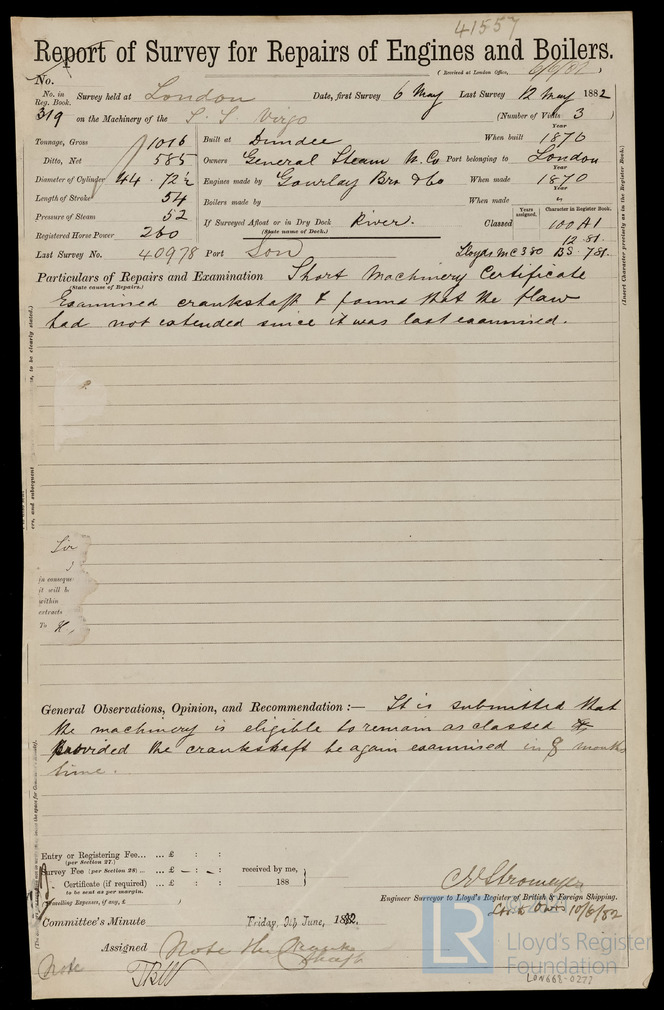 41557
Report of Survey for Repairs of Engines and Boilers.
(Received at London Office, 6/6/82)
No.
No. in Reg. Book. Survey held at London Date, first Survey 6 May Last Survey 12 May 1882
319 on the Machinery of the S. S. Virgo (Number of Visits 3 )
Tonnage, Gross 1016 Built at Dundee When built 1870
Ditto, Net 585 Owners General Steam N. Co Port belonging to London
Diameter of Cylinder 44 . 72½ Engines made by Gourlay Bros & Co When made 1870
Length of Stroke 54 Boilers made by When made "
Pressure of Steam 52 If Surveyed Afloat or in Dry Dock River.
(State name of Dock.)
Years assigned. Character in Register Book.
Registered Horse Power 260 Classed 100 A1
12.81.
Last Survey No. 40978 Port Lon Lloyds MC 3 80 BS. 781.
(Insert Character precisely as in the Register Book.)
Particulars of Repairs and Examination Short Machinery Certificate
(State cause of Repairs.)
Examined crankshaft & found that the flaw
had not extended since it was last examined.
to be clearly stated.)
and subsequent
Sir
in conseque
it will b
within
extracts
To
General Observations, Opinion, and Recommendation :— It is submitted that
the machinery is eligible to remain as classed
provided the crankshaft be again examined in 8 months
time.
Entry or Registering Fee... ... £ : :
(per Section 27.)
Survey Fee (per Section 28) ... ... £ - : - : received by me,
Certificate (if required) ... £ : : 188
to be sent as per margin.
Travelling Expenses, if any, £
Engineer Surveyor to Lloyd's Register of British & Foreign Shipping.
10/6/82
Committee's Minute Friday, 9th June, 1882.
Assigned Note the Crank
shaft
Note
TRW
LR
Lloyd's Register
Foundation
LON668-0277